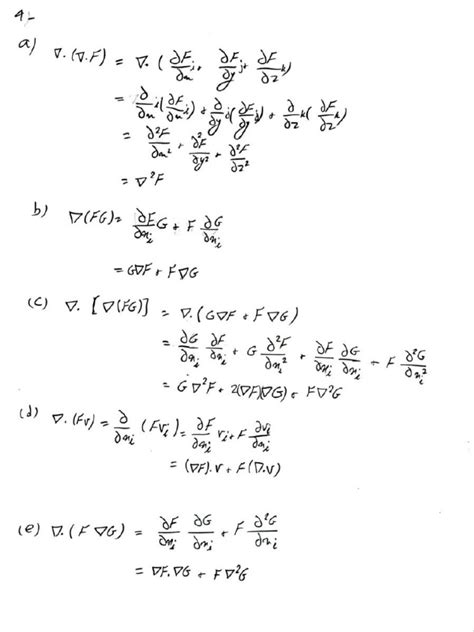 4-
a) ∇.(∇.F) = ∇.(∂F/∂x i, ∂F/∂y j+ ∂F/∂z k)
= ∂/∂x i(∂F/∂x i) + ∂/∂y j(∂F/∂y j) + ∂/∂z k(∂F/∂z k)
= ∂²F/∂x² + ∂²F/∂y² + ∂²F/∂z²
= ∇²F
b) ∇(FG) = ∂F/∂xᵢ G + F ∂G/∂xᵢ
= G∇F + F∇G
(c) ∇. [∇(FG)] = ∇.(G∇F + F∇G)
= ∂G/∂xᵢ ∂F/∂xᵢ + G ∂²F/∂xᵢ² + ∂F/∂xᵢ ∂G/∂xᵢ + F ∂²G/∂xᵢ²
= G∇²F + 2(∇F)(∇G) + F∇²G
(d) ∇.(Fv) = ∂/∂xᵢ (Fvᵢ) = ∂F/∂xᵢ vᵢ + F ∂vᵢ/∂xᵢ
= (∇F).v + F(∇.v)
(e) ∇.(F ∇G) = ∂F/∂xᵢ ∂G/∂xᵢ + F ∂²G/∂xᵢ
= ∇F.∇G + F∇²G